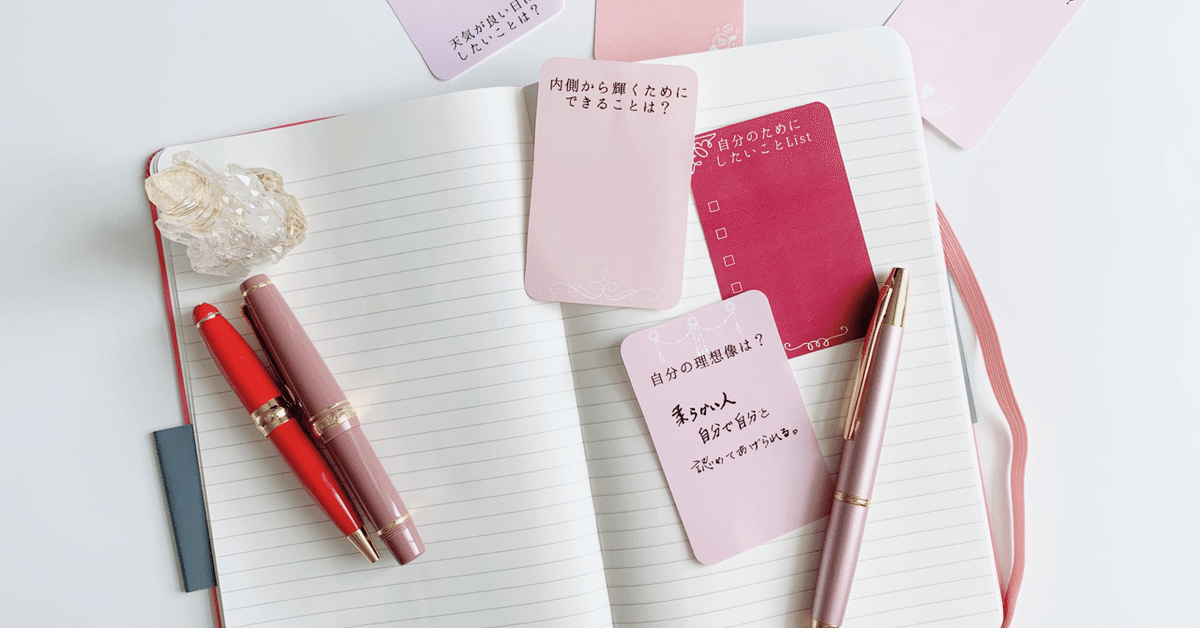 天気が良い日に
したいことは？
内側から輝くために
できることは？
自分のために
したいことList
自分の理想像は？
柔らかい人
自分で自分と
認めてあげられる。